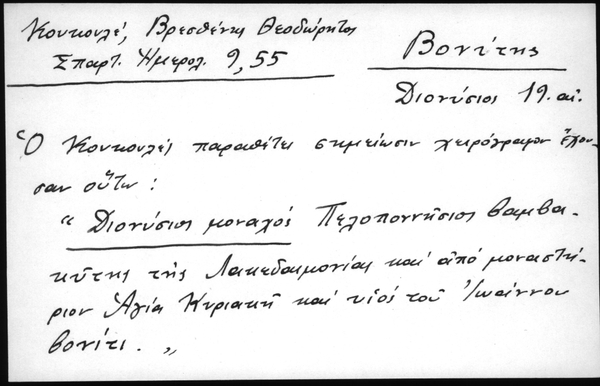 Κουκουλέ, Βρεσθένης Θεοδώρητος
Σπαρτ. Ημερολ. 9, 55
Βονίτης
Διονύσιος 19. αἰ.
Ὁ Κουκουλές παραθέτει σημείωσιν χειρόγραφον ἔχου-
σαν οὕτω :
" Διονύσιος μοναχός Πελοποννήσιος βαμβα-
κύτης τῆς Λακεδαιμονίας καί ἀπό μοναστή-
ριον Ἁγία Κυριακή καί υἱός τοῦ Ἰωάννου
βονίτι. "